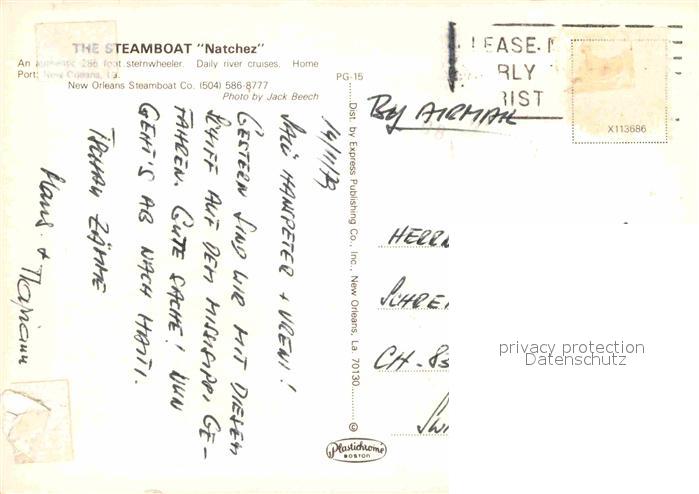 THE STEAMBOAT "Natchez"
An authentic 286 foot sternwheeler. Daily river cruises. Home
Port: New Orleans, La.
New Orleans Steamboat Co. (504) 586-8777
Photo by Jack Beech
PG-15
Dist. by Express Publishing Co., Inc., New Orleans, La. 70130
©
Plastichrome
BOSTON
14/11/79
SALÜ HANSPETER + VRENI!
GESTERN SIND WIR MIT DIESEM
SCHIFF AUF DEM MISSISSIPPI GE-
FAHREN. GUTE SACHE! NUN
GEHT'S AB NACH HAITI.
TSCHAU ZÄMME
Hans. +
LEASE
RLY
RIST
X113686
By AIRMAIL
HERRN
SCHRE
CH-85
SWI
privacy protection
Datenschutz